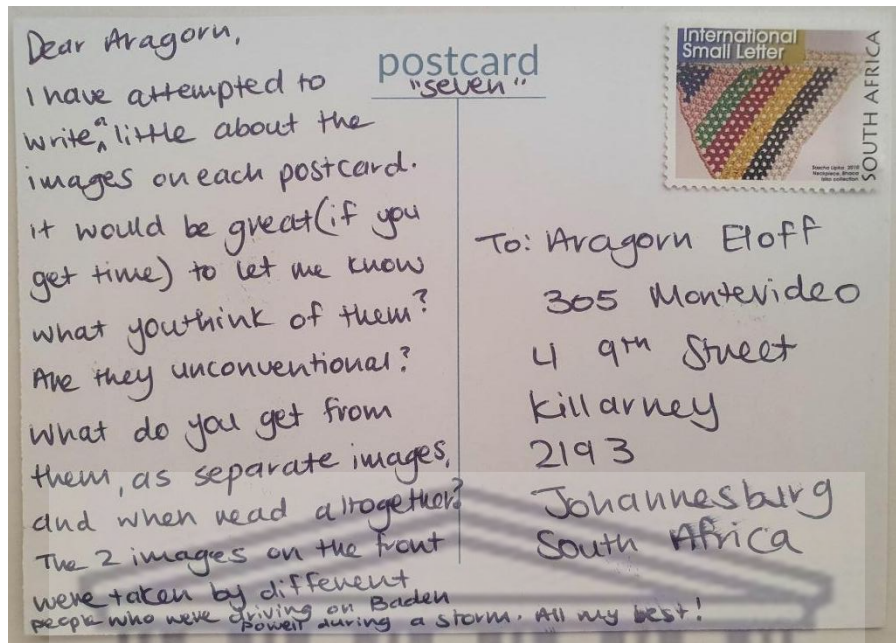 Dear Aragorn,
I have attempted to
write a little about the
images on each postcard.
it would be great (if you
get time) to let me know
what you think of them?
Are they unconventional?
What do you get from
them, as separate images,
and when read altogether?
The 2 images on the front
were taken by different
people who were driving on Baden
Powell during a storm. All my best!
postcard
"seven"
International
Small Letter
SOUTH AFRICA
2010
To: Aragorn Eloff
305 Montevideo
4 9th Street
Killarney
2193
Johannesburg
South Africa